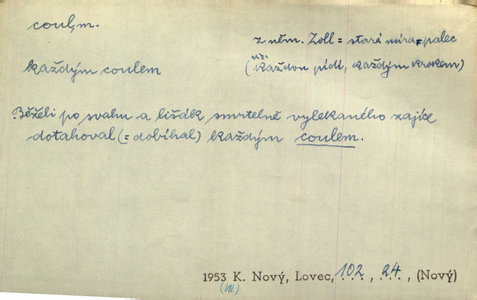 coul, m.
z něm. Zoll = stará míra = palec
každým coulem
(každou pídí, každým krokem)
Běželi po svahu a lišák smrtelně vylekaného zajíce
dotahoval (= dobíhal) každým coulem.
1953 K. Nový, Lovec, 102, 24, (Nový)